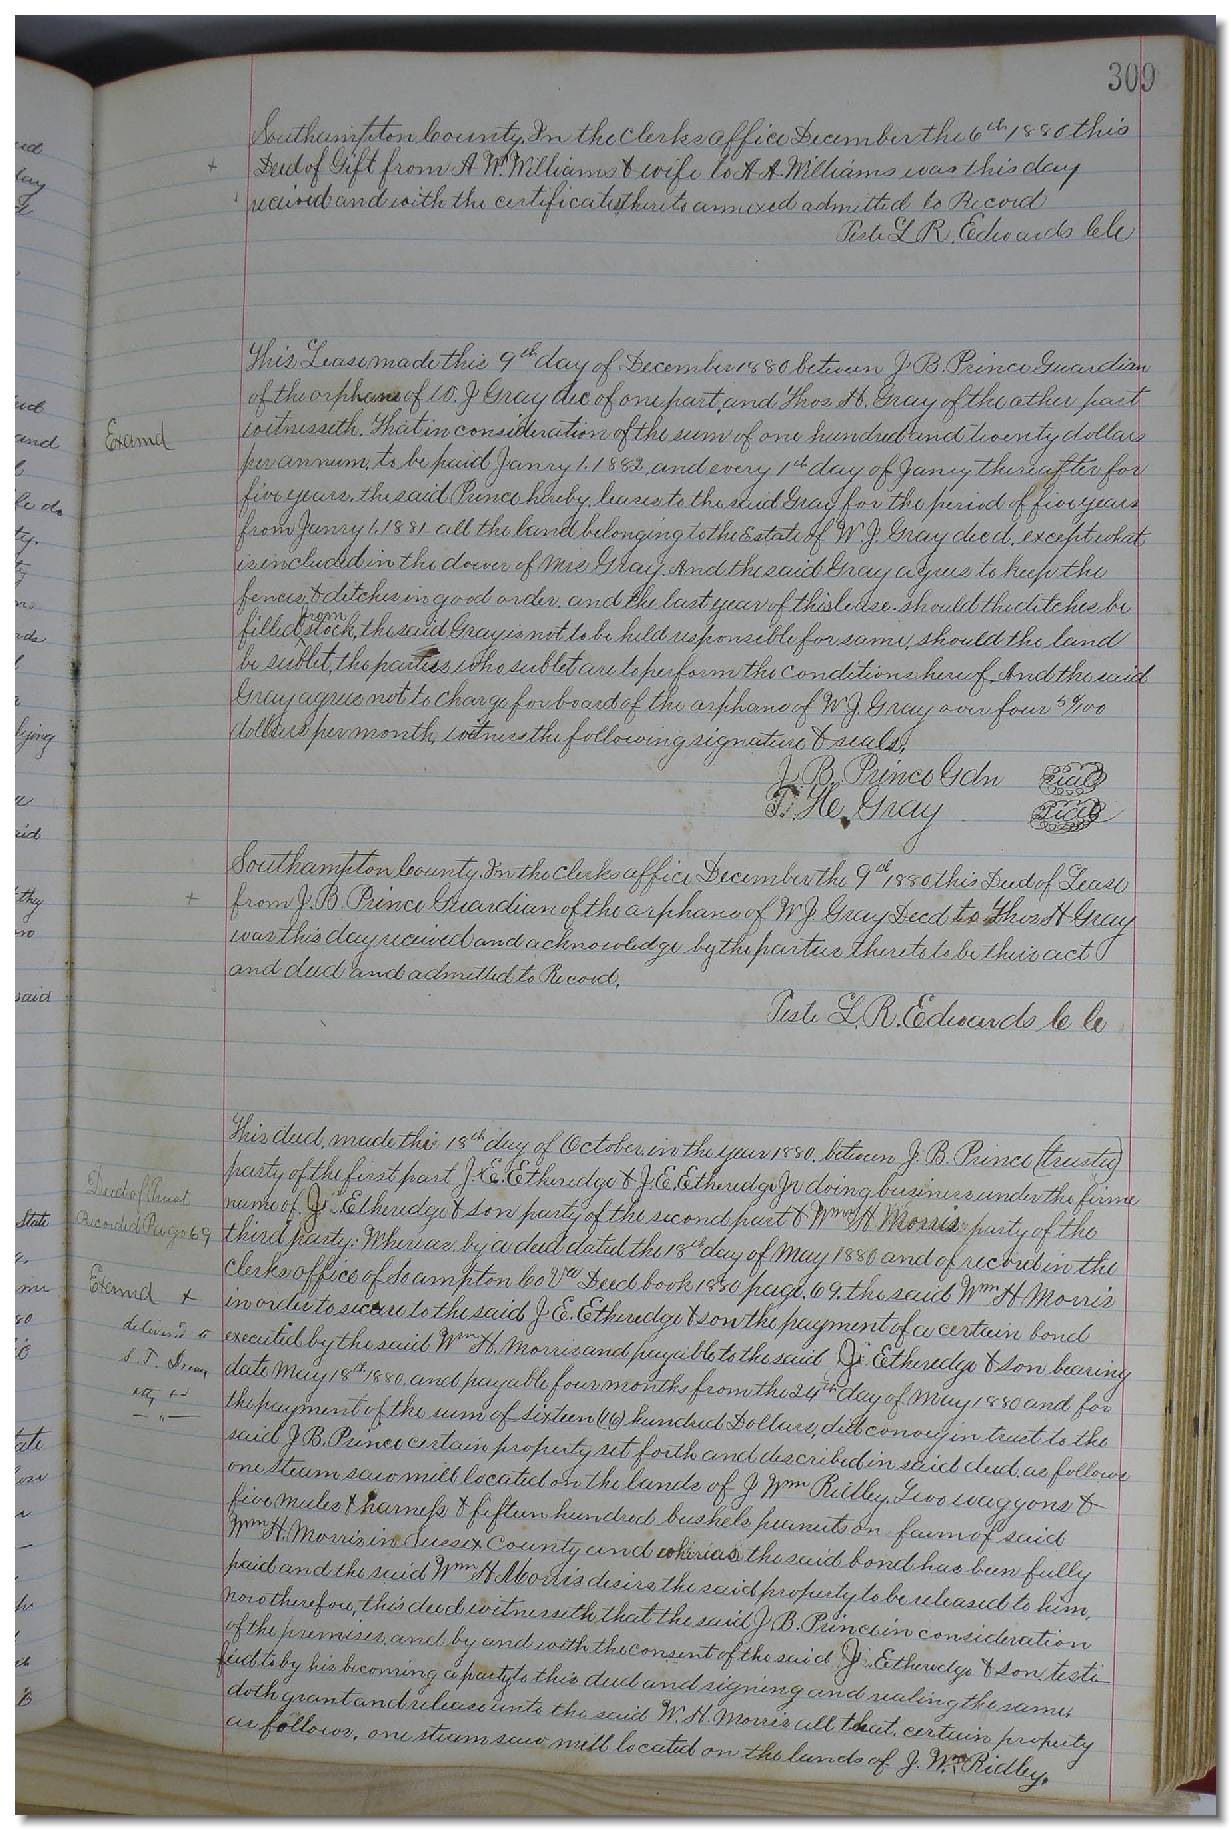 309
Southampton County. In the Clerks office December the 6th 1880 this
Deed of Gift from A. W. Williams & wife to A A Williams was this day
received and with the certificates thereto annexed admitted to Record
Teste L R. Edwards CC
This Lease made this 9th day of December 1880 between J. B. Prince Guardian
of the orphans of W. J Gray dec of one part, and Thos. H. Gray of the other part
Examd
witnesseth. That in consideration of the sum of one hundred and twenty dollars
per annum, to be paid Janry 1. 1882, and every 1st day of Janry thereafter for
five years. the said Prince hereby leases to the said Gray for the period of five years
from Janry 1. 1881 all the land belonging to the Estate of W. J. Gray decd. except what
is included in the dower of Mrs Gray. And the said Gray agrees to keep the
fences & ditches in good order, and the last year of this lease should the ditches be
filled from stock, the said Gray is not to be held responsible for same, should the land
be sublet, the parties who sublet are to perform the conditions hereof. And the said
Gray agrees not to charge for board of the orphans of W J. Gray over four 50/100
dollars per month, witness the following signature & seals.
J. B. Prince Gdn Seal
T. H. Gray Seal
Southampton County. In the Clerks office December the 9th 1880 this Deed of Lease
from J. B. Prince Guardian of the orphans of W J Gray Decd to Thos H Gray
was this day received and acknowledge by the parties thereto to be their act
and deed and admitted to Record.
Teste L. R. Edwards CC
This deed, made this 18th day of October in the year 1880. between J. B. Prince (trustee)
party of the first part J. E. Etheredge & J. E. Etheredge Jr doing business under the firme
Deed of Trust
name of J. E. Etheredge & son party of the second part & Wm H Morris party of the
Recorded Page 69
third party: Whereas by a deed dated the 18th day of May 1880 and of record in the
clerks office of So ampton Co Va Deed book 1880 page. 69. the said Wm H. Morris
Examd +
in order to secure to the said J. E. Etheredge & son the payment of a certain bond
delivered to
executed by the said Wm H. Morris and payable to the said J. E. Etheredge & son bearing
date May 18th 1880. and payable four months from the 24th day of May 1880 and for
the payment of the sum of sixteen (16) hundred Dollars, did convey in trust to the
said J B. Prince certain property set forth and described in said deed, as follows
one steam saw mill located on the lands of J Wm Ridley. Two waggons &
five mules & harness & fifteen hundred bushels peanuts on farm of said
Wm H. Morris in Sussex County and whereas the said bond has been fully
paid and the said Wm H Morris desires the said property to be released to him,
now therefore, this deed witnesseth that the said J. B. Prince in consideration
of the premises, and by and with the consent of the said J. E. Etheredge & son testi
fied to by his becoming a party to this deed and signing and sealing the same,
doth grant and release unto the said W. H. Morris all that. certain property
as follows, one steam saw mill located on the lands of J. Wm Ridley.